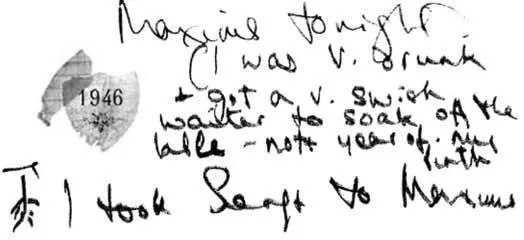 Maxims tonight
(I was v. drunk
1946
+ got a v. swish
waiter to soak off the
lable – note year of my
birth
I took Serge to Maxims